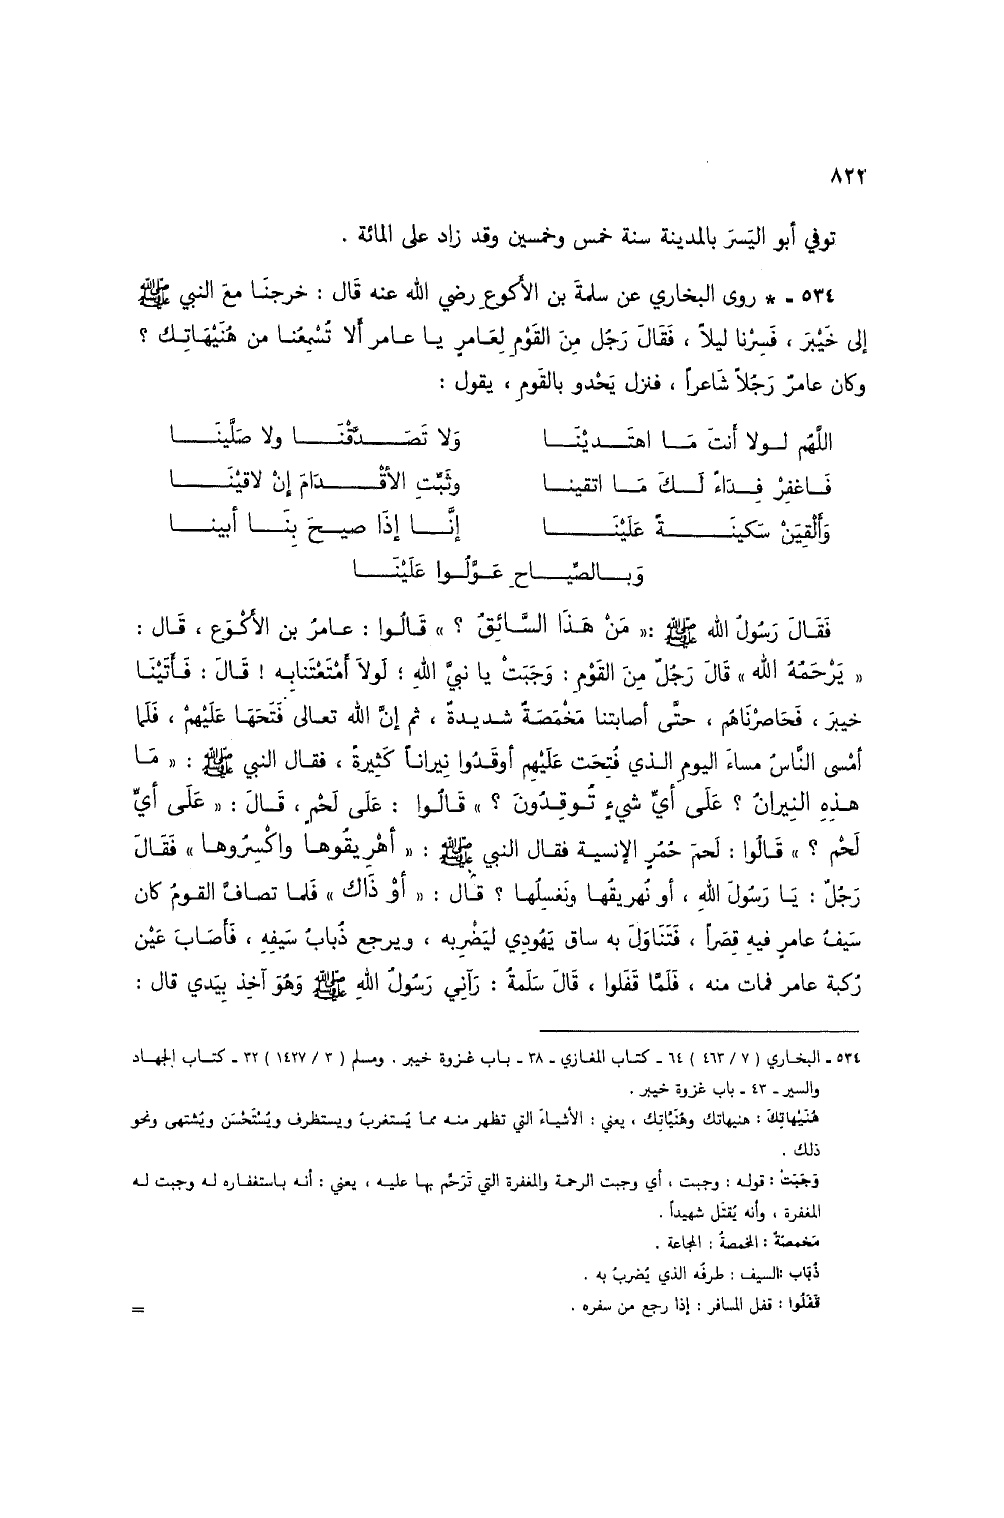 ٨٢٢
توفي أبو اليَسَر بالمدينة سنة خمس وخمسين وقد زاد على المائة .
٥٣٤ - * روى البخاري عن سلمةَ بن الأكوعِ رضي الله عنه قَال : خرجنَا معَ النبي ﷺ
إلى خَيْبرَ ، فَسِرْنا ليلاً ، فَقَالَ رَجُل مِنَ القَوْمِ لِعَامرٍ يـا عـامر ألَا تُسْمِعُنـا من هُنَيْهَاتِـك ؟
وكان عامرٌ رَجُلاً شَاعراً ، فنزل يَحْدو بالقَوم ، يقول :
اللَّهُم لـولا أنتَ مَـا اهتَـديْنَـا وَلا تَصَـدَّقْنَـا ولا صَلَّينَـا
فَـاغفِرْ فِـدَاءً لَـكَ مَـا اتقينـا وثَبِّتِ الأقْـدَامَ إنْ لاقَيْنَـا
وَأَلْقِيَنْ سَكينَـةً عَلَيْنَـا إنَّـا إذَا صيـحَ بِنَـا أبينـا
وَبـالصِّيَـاحِ عَـوَّلُـوا عَلَيْنَـا
فَقَالَ رَسُولُ الله ﷺ :« مَنْ هَـذَا السَّـائِقُ ؟ » قَـالُـوا : عـامرُ بن الأكْوَع ، قَـال :
« يَرْحَمُهُ الله » قَالَ رَجُلٌ مِنَ القَوْمِ : وَجَبَتْ يا نبيَّ اللهِ ؛ لَولاَ أمْتَعْتَنابِه ! قَـالَ : فَـأتَيْنَـا
خيبرَ ، فَحَاصرْنَاهُم ، حتَّى أصابتنا مَخْمَصَةٌ شديدةٌ ، ثم إنَّ الله تعـالى فَتَحَهَـا عَلَيْهِمْ ، فَلَما
أمْسى النَّاسُ مساءَ اليومِ الـذي فُتِحَت عَلَيْهِم أوقَـدُوا نِيراناً كَثِيرةً ، فقـال النبي ﷺ : « مَـا
هـذِهِ النِيرانُ ؟ عَلَى أيِّ شيءٍ تُـوقِـدُونَ ؟ » قَـالُـوا : عَلَى لَحْمٍ ، قَـالَ : « عَلَى أيِّ
لَحْمٍ ؟ » قَـالُوا : لَحمَ حُمُرِ الإنسيـة فقـال النبي ﷺ : « أهْرِيقُوهـا واكْسِرُوهـا » فَقَالَ
رَجُلٌ : يَـا رَسُولَ اللهِ ، أو نُهريقُهـا ونَغسِلُهـا ؟ قَـال : « أوْ ذَاكَ » فَلَمـا تصافَّ القـومُ كان
سَيفُ عامرٍ فيه قِصَراً ، فَتَنَاوَلَ به ساق يَهُودي لِيَضْرِبه ، ويرجع ذُبابُ سَيفِهِ ، فَأَصَابَ عَيْن
رُكبة عامرٍ فمات منه ، فَلَمَّا قَفَلوا ، قَالَ سَلَمةُ : رَآنِي رَسُولُ اللهِ ﷺ وَهُوَ آخِذ بِيَدي قال :
٥٣٤ - البخـاري ( ٧ / ٤٦٣ ) ٦٤ - كتـاب المغازي - ٣٨ - بـاب غزوة خيبر . ومسلم ( ٣ / ١٤٢٧ ) ٣٢ - كتـاب الجهـاد
والسير - ٤٣ - باب غزوة خيبر .
هُنَيْهاتِكَ : هنيهاتك وهُنَيَّاتِك ، يعني : الأشياءَ التي تظهر منـه ممـا يُستغربُ ويستظرف ويُسْتَحْسَن ويُشتهى ونحو
ذلك .
وَجَبَت : قوله : وجبت ، أي وجبت الرحمة والمغفرة التي تَرَحَّم بهـا عليـه ، يعني : أنـه بـاستغفـاره لـه وجبت لـه
المغفرة ، وأنه يُقتَل شهيداً .
مَخمصَةٌ : المخمصةُ : المجاعة .
ذُبَاب السيف : طرفُه الذي يُضربُ به .
قَفَلُوا : قفل المسافر : إذا رجع من سفره .
=